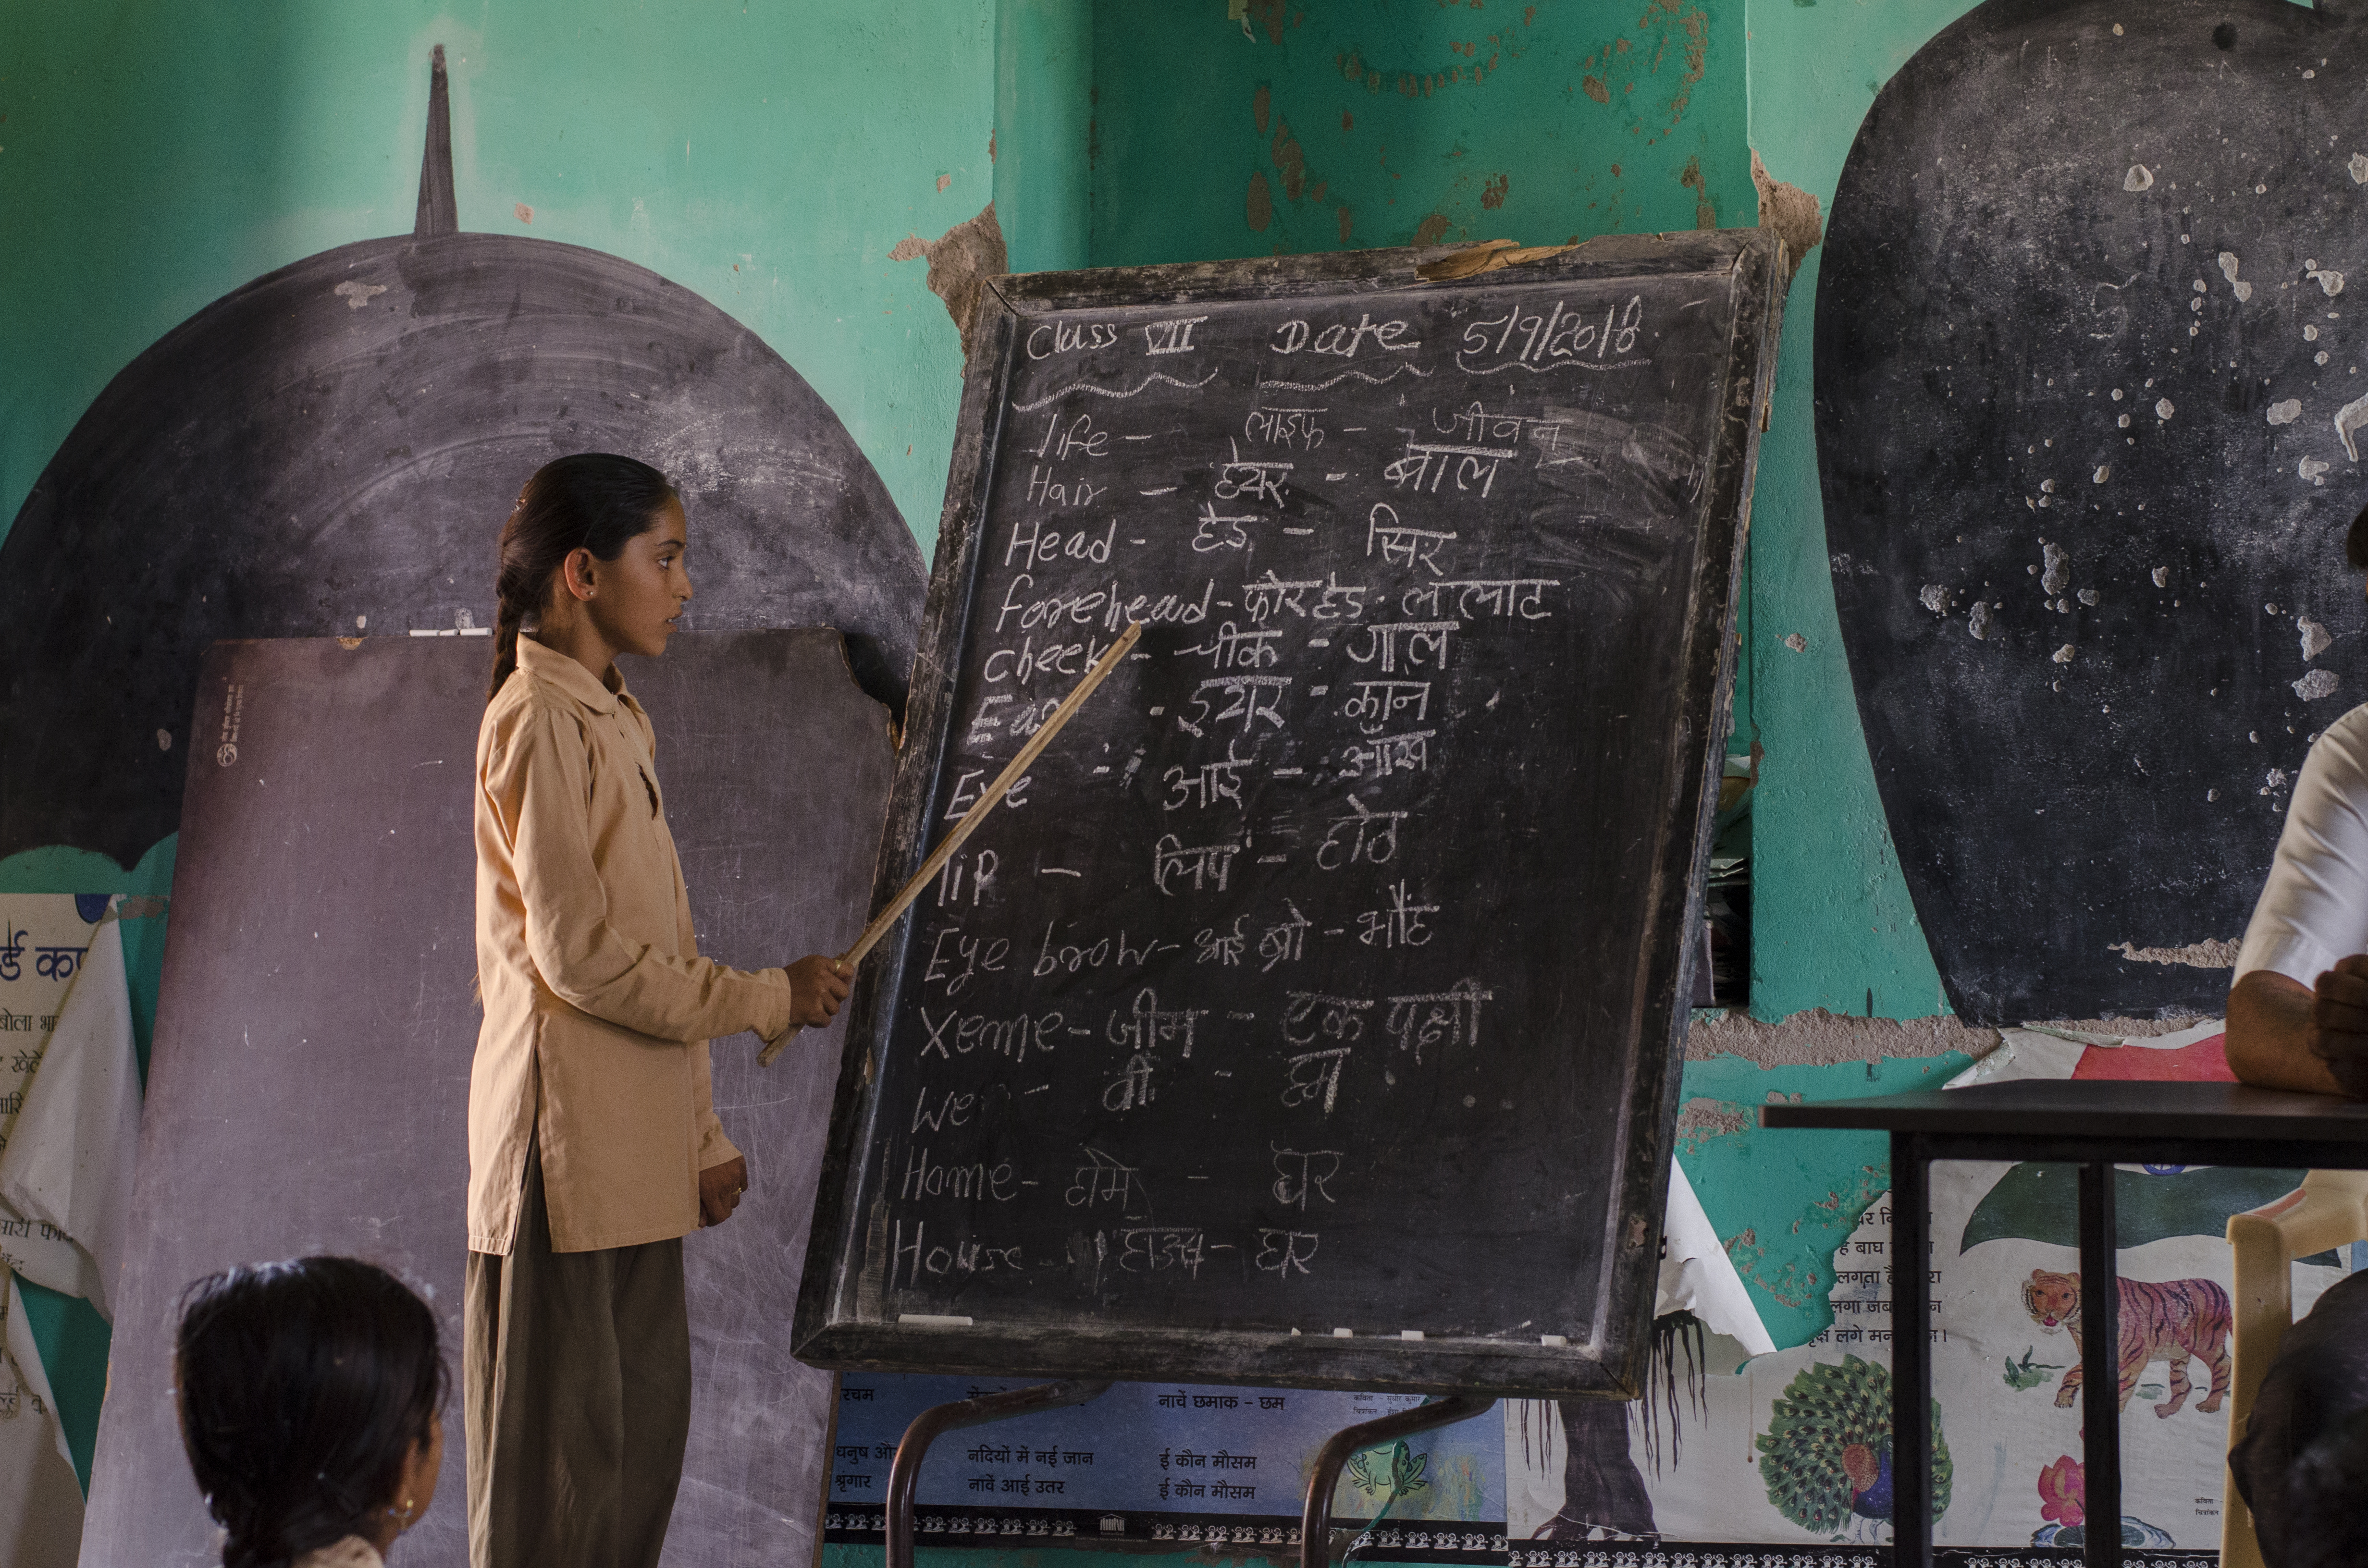 Class VII Date 5/9/2018
life - लाइफ - जीवन
Hair - हेयर - बाल
Head - हैड - सिर
forehead - फोरहैड - ललाट
cheek - चीक - गाल
Ear - ईयर - कान
Eye - आई - आँख
lip - लिप - होठ
Eye brow - आई ब्रो - भौंह
Xeme - जीम - एक पक्षी
We - वी - हम
Home - होम - घर
House - हाउस - घर
र्ड
बोला
नाचें छमाक - छम
नदियों में नई जान
ई कौन मौसम
श्रृंगार
नावें आई उतर
ई कौन मौसम
बाघ
लगता
लगा
लगे